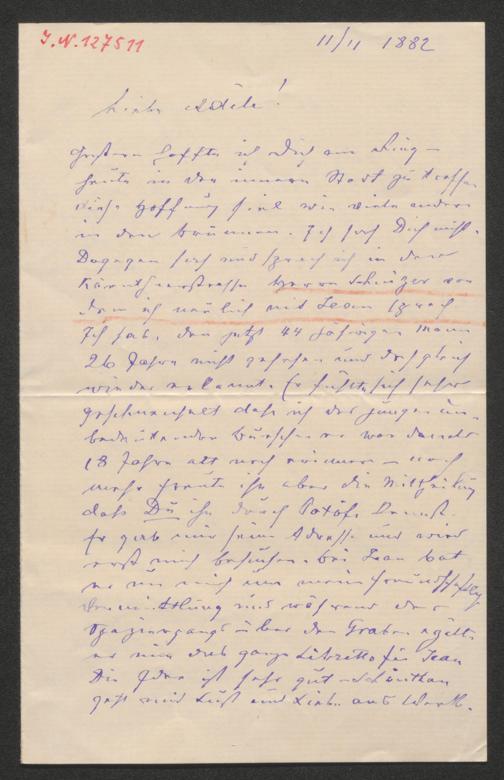 I.N. 127511
11/11 1882
Liebe Adele!
Gestern hoffte ich Dich am Ring –
heute in der innern Stadt zu treffen
diese Hoffnung fiel wie viele andere
in den Brunnen. Ich sah Dich nicht.
Dagegen sah und sprach ich in der
Kärnthnerstrasse Herrn Schnitzer von
dem ich neulich mit Jean sprach
Ich hab. den jetzt 44 jährigen Mann
26 Jahre nicht gesehen und doch gleich
wieder erkannt. Er fühlte sich sehr
geschmeichelt dass ich des jungen un-
bedeutenden Burschen er war damals
18 Jahre alt noch erinnere – noch
mehr freute ihn aber die Mittheilung
dass Du ihn durch kennst.
Er gab mir seine Adresse und wird
erst mich besuchen. Bei Jean bat
er um meine freundschaftliche
Vermittlung und während des
Spazierganges über den Graben
er mir das ganze Libretto für Jean
Die Idee ist sehr gut – Schönthan
geht mit Lust und Liebe ans Werk.